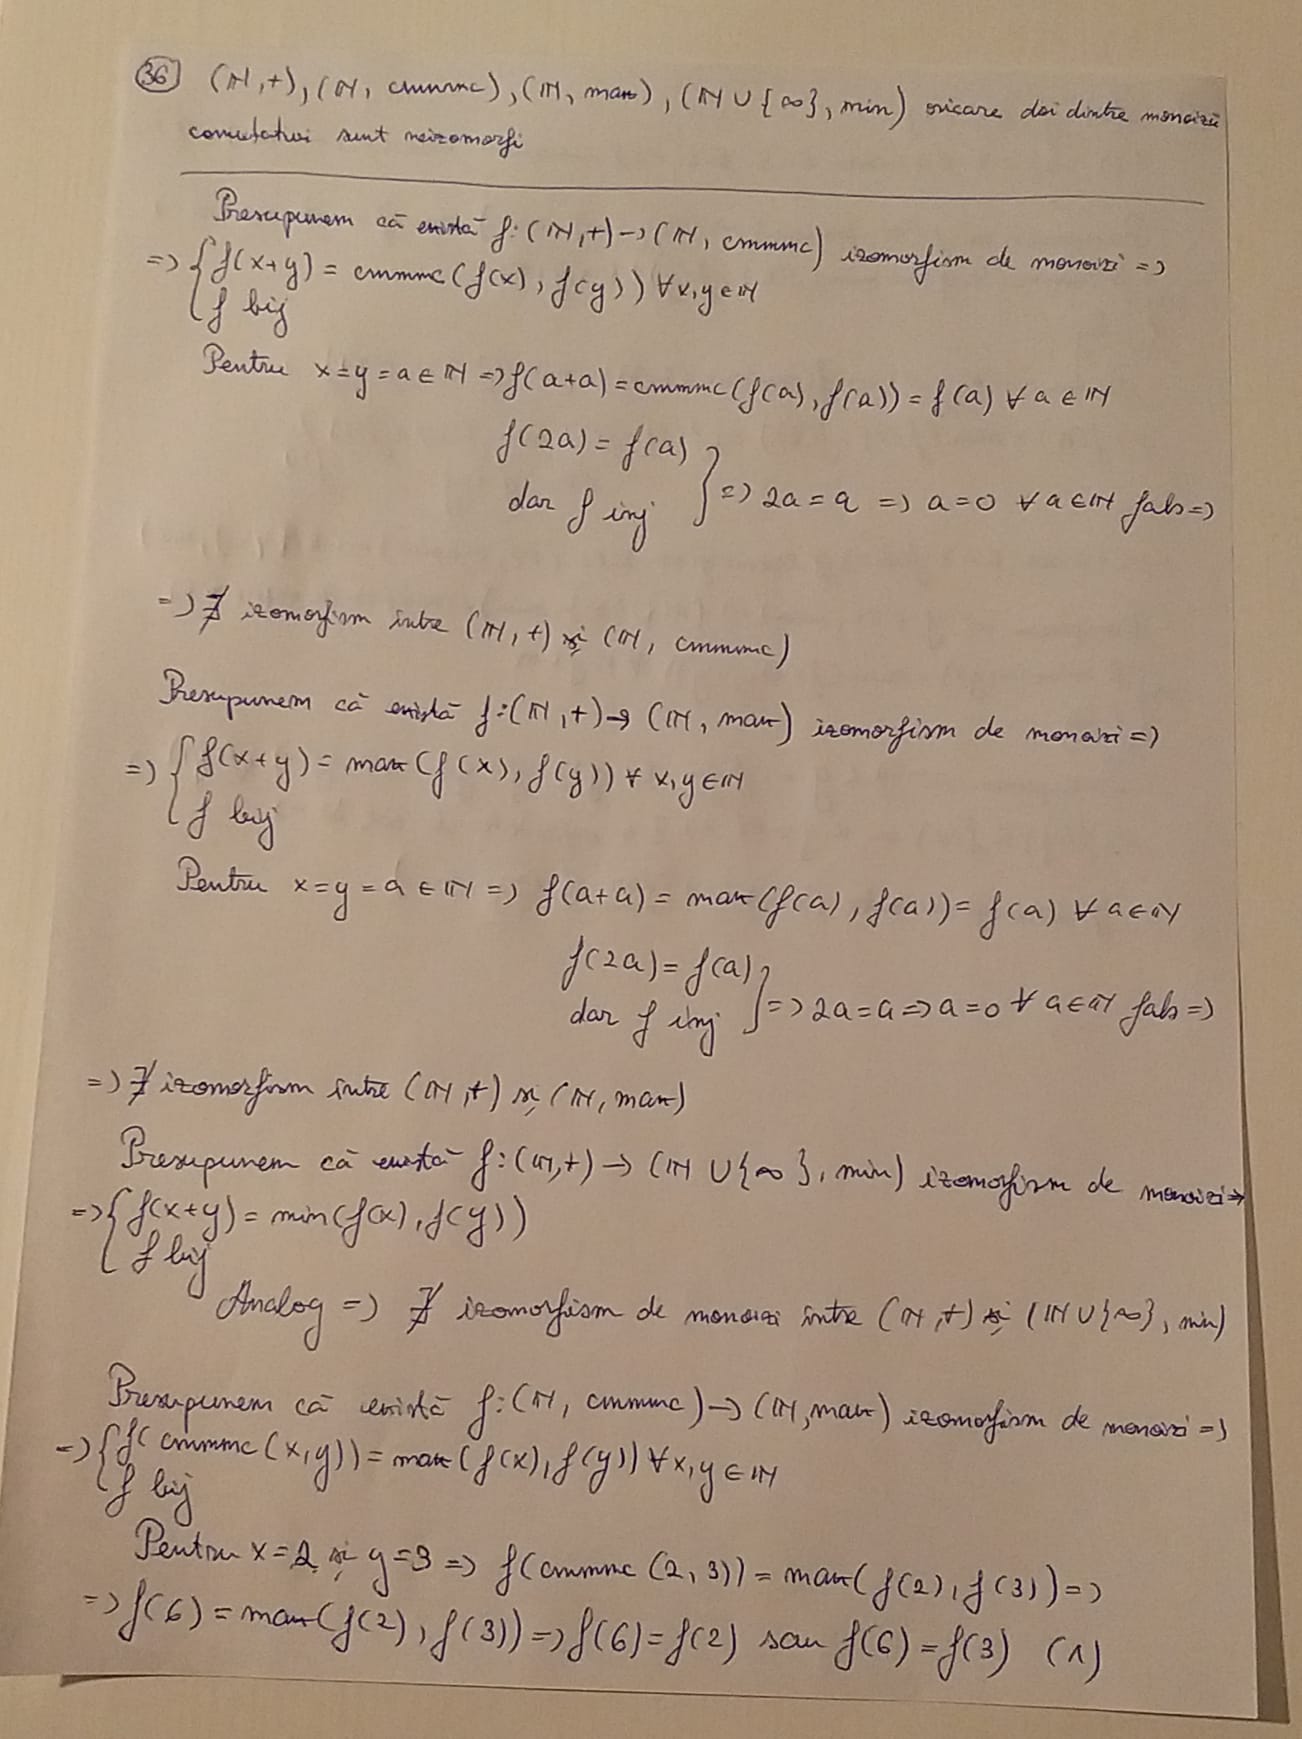 36 (ℕ,+), (ℕ, cmmmc), (ℕ, max), (ℕ ∪ {∞}, min) oricare doi dintre monoizii
comutativi sunt neizomorfi
Presupunem că există f: (ℕ,+) → (ℕ, cmmmc) izomorfism de monoizi =>
=> { f(x+y) = cmmmc (f(x), f(y)) ∀ x,y ∈ ℕ
f bij
Pentru x=y=a ∈ ℕ => f(a+a) = cmmmc (f(a), f(a)) = f(a) ∀ a ∈ ℕ
f(2a) = f(a)
dar f inj } => 2a = a => a=0 ∀ a ∈ ℕ fals =>
=> ∄ izomorfism între (ℕ,+) și (ℕ, cmmmc)
Presupunem că există f: (ℕ,+) → (ℕ, max) izomorfism de monoizi =>
=> { f(x+y) = max (f(x), f(y)) ∀ x,y ∈ ℕ
f bij
Pentru x=y=a ∈ ℕ => f(a+a) = max (f(a), f(a)) = f(a) ∀ a ∈ ℕ
f(2a) = f(a)
dar f inj } => 2a=a => a=0 ∀ a ∈ ℕ fals =>
=> ∄ izomorfism între (ℕ,+) și (ℕ, max)
Presupunem că există f: (ℕ,+) → (ℕ ∪ {∞}, min) izomorfism de monoizi =>
=> { f(x+y) = min (f(x), f(y))
f bij
Analog => ∄ izomorfism de monoizi între (ℕ,+) și (ℕ ∪ {∞}, min)
Presupunem că există f: (ℕ, cmmmc) → (ℕ, max) izomorfism de monoizi =>
=> { f( cmmmc (x,y)) = max (f(x), f(y)) ∀ x,y ∈ ℕ
f bij
Pentru x=2 și y=3 => f(cmmmc (2,3)) = max (f(2), f(3)) =>
=> f(6) = max (f(2), f(3)) => f(6) = f(2) sau f(6) = f(3) (1)